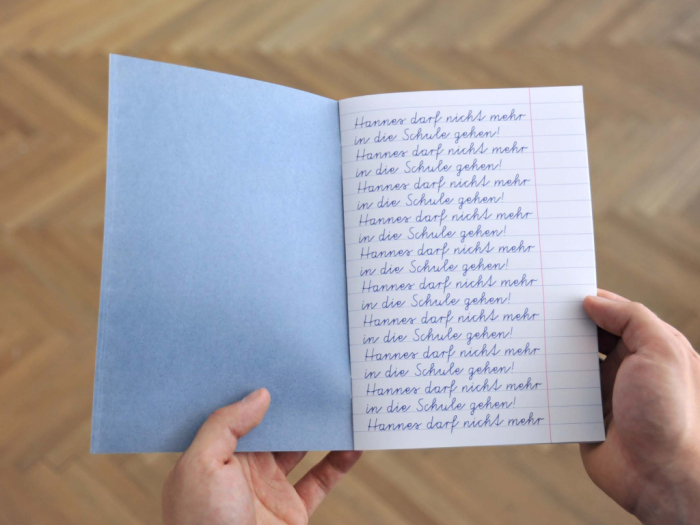 Hannes darf nicht mehr
in die Schule gehen!
Hannes darf nicht mehr
in die Schule gehen!
Hannes darf nicht mehr
in die Schule gehen!
Hannes darf nicht mehr
in die Schule gehen!
Hannes darf nicht mehr
in die Schule gehen!
Hannes darf nicht mehr
in die Schule gehen!
Hannes darf nicht mehr
in die Schule gehen!
Hannes darf nicht mehr
in die Schule gehen!
Hannes darf nicht mehr
in die Schule gehen!
Hannes darf nicht mehr